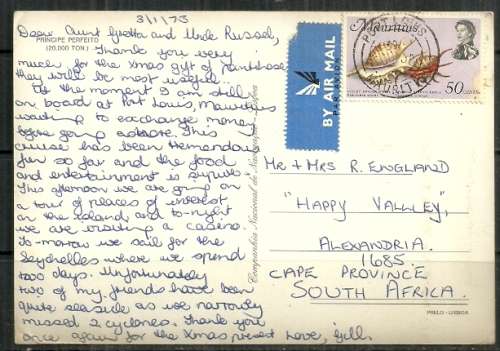 3/1/73
Dear Aunt Gretta and Uncle Russel,
PRINCIPE PERFEITO
(20,000 TON)
Thank you very
much for the Xmas gift of
they will be most useful.
At the moment I am still
on board at Port Louis, Mauritius
waiting to exchange money
before going ashore. This
cruise has been tremendous
fun so far and the food
and entertainment is superb.
This afternoon we are going on
a tour of places of interest
on the island and to-night
we are visiting a casino.
To-morrow we sail for the
Seychelles where we spend
two days. Unfortunately
two of my friends have been
quite seasick as we narrowly
missed 2 cyclones. Thank you
once again for the Xmas present Love, Gill.
Companhia Nacional de Navegação
BY AIR MAIL
Mauritius
50 cents
PORT LOUIS
MAURITIUS
Mr + Mrs R. ENGLAND
"HAPPY VALLLEY",
ALEXANDRIA.
1685.
CAPE PROVINCE
SOUTH AFRICA.
PRELO - LISBOA